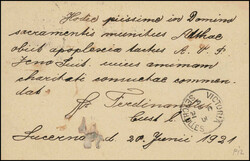 Hodie piissime in Domino
sacramentis munitus
obiit apoplexia tactus A. V. P.
cuius animam
charitati consuetae commen-
dat
fr. Ferdinan
Cust
Lucerna 20 Junii 1921